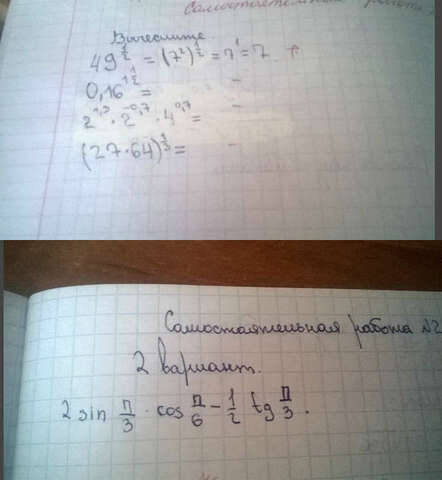 Самостоятельная работа
Вычислите.
49^{\frac{1}{2}} = (7²)^{\frac{1}{2}} = 7¹ = 7. +
0,16^{1\frac{1}{2}} = -
2^{1,3} · 2^{-0,7} · 4^{0,7} = -
(27·64)^{\frac{1}{3}} = -
Самостоятельная работа №2
2 вариант.
2 sin π/3 · cos π/6 - 1/2 tg π/3.